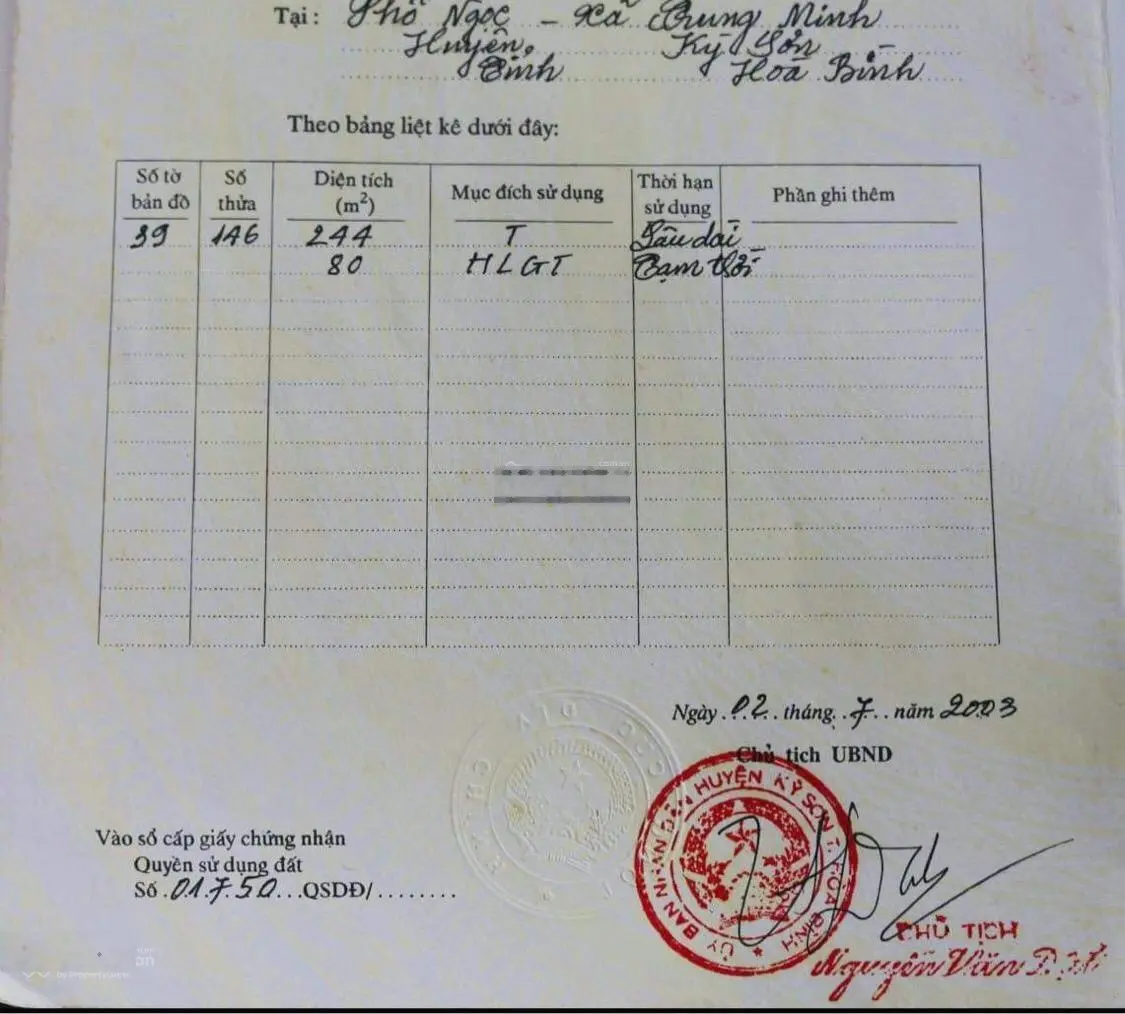 Tại : Phố Ngọc - Xã Trung Minh
Huyện Kỳ Sơn
Tỉnh Hoà Bình
Theo bảng liệt kê dưới đây:
Số tờ bản đồ Số thửa Diện tích (m²) Mục đích sử dụng Thời hạn sử dụng Phần ghi thêm
39 146 244 T Lâu dài
80 HLGT Tạm thời
Ngày 02 tháng 7 năm 2003
Chủ tịch UBND
ỦY BAN NHÂN DÂN HUYỆN KỲ SƠN T. HÒA BÌNH
Vào sổ cấp giấy chứng nhận
Quyền sử dụng đất
Số 01750 QSDĐ/
CHỦ TỊCH
Nguyễn Văn